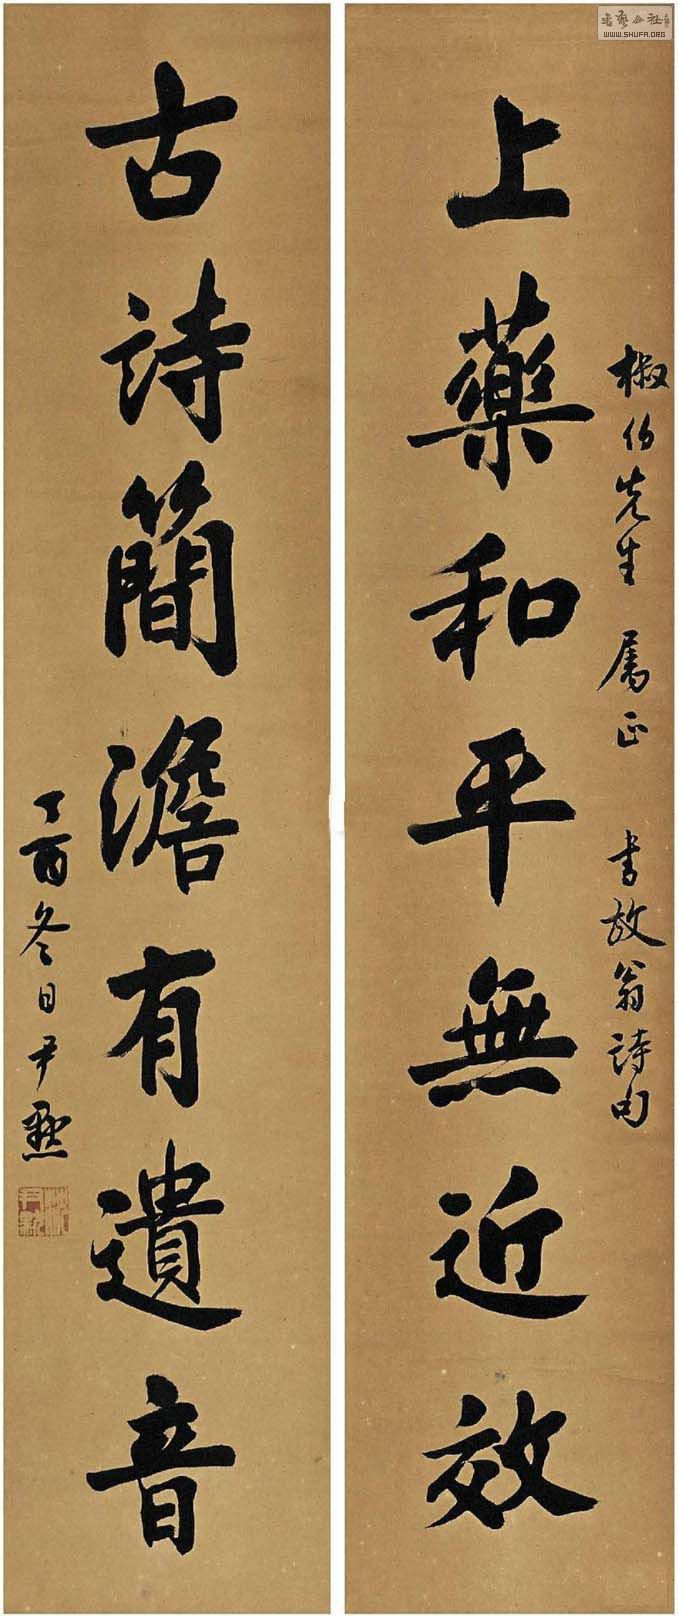 椒伯先生 属正 書放翁詩句
上藥和平無近效
古詩簡澹有遺音
丁酉冬日尹默
書藝公社
WWW.SHUFA.ORG